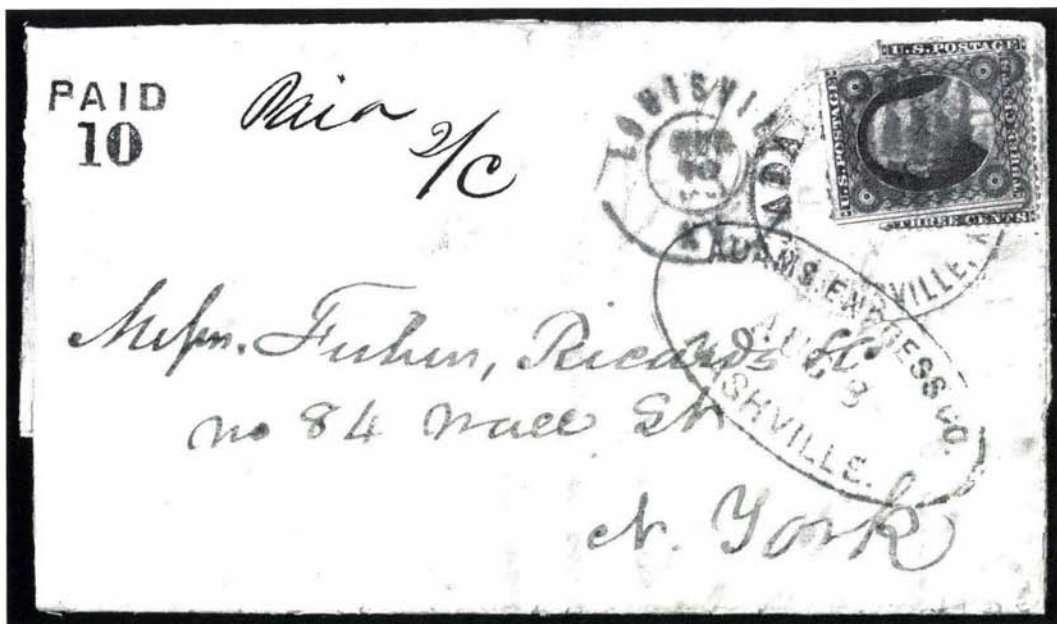 PAID
10
2/C
LOUISVIL
ADA
VILLE,
U.S. POSTAGE
U.S. POSTAGE
THREE CENTS
THREE CENTS
ADAMS EXPRESS CO.
AUG 3
SHVILLE.
Messrs. Fisher, Ricards &Co
no 84 Wall St
N. York